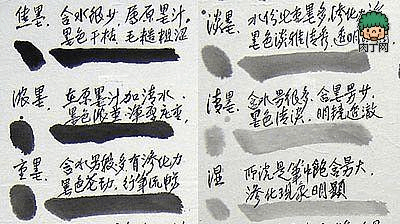 焦墨 含水很少,属原墨汁。
墨色干枯,毛糙粗涩
浓墨 在原墨汁加清水
墨色浓重
重墨 含水量很多有渗化力
墨色苍劲,行笔流畅
淡墨 水份比重墨多,渗化力
墨色淡雅清秀,透明
清墨 含水量很多,含墨量少
墨色清淡,明镜透澈
湿 所说是笔中饱含量大
渗化现象明显
肉丁网